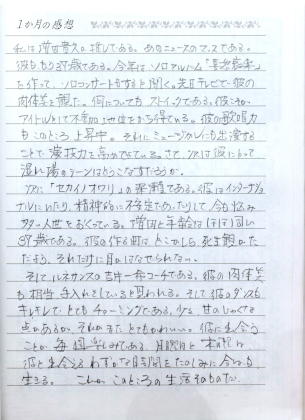 1か月の感想
私は増田貴久の推しである。あのニュースのマスである。
彼ももう37歳である。今年はソロアルバム「
を作って、ソロコンサートをすると聞く。先日テレビで彼の
肉体美を観た。何についてもストイックである。彼こそが
アイドルとして不動の地位だから得ている。彼の歌唱力
もこのところ上昇中。それにミュージカルにも出演する
ことで演技力を高めでいている。さて、次は彼にとって
濡れ場のシーンはどうこなすだろうか。
次に「セカイノオワリ」の深瀬である。彼はインターナショナ
ルにいたり、精神的に不安定であったりして今も悩み
多き人世をおくっている。増田と年齢はほぼ同い
37歳である。彼の作る曲はどこかしら死を観かた
だよう、それだけに目がはなせられない。
そしてルネサンスの吉井一恭コーチである。彼の肉体美
も相当手入れをしていると思われる。そして彼のダンスも
キレキレで、とてもチャーミングである。少々甘のしゃくな
点があるが、それがまたとてもかわいい。彼に出会う
ことが毎週楽しみである。月曜日と木曜に
彼と出会うわずかな時間をたのしみに今日も
生きる。これがこのところの生活そのものだ。